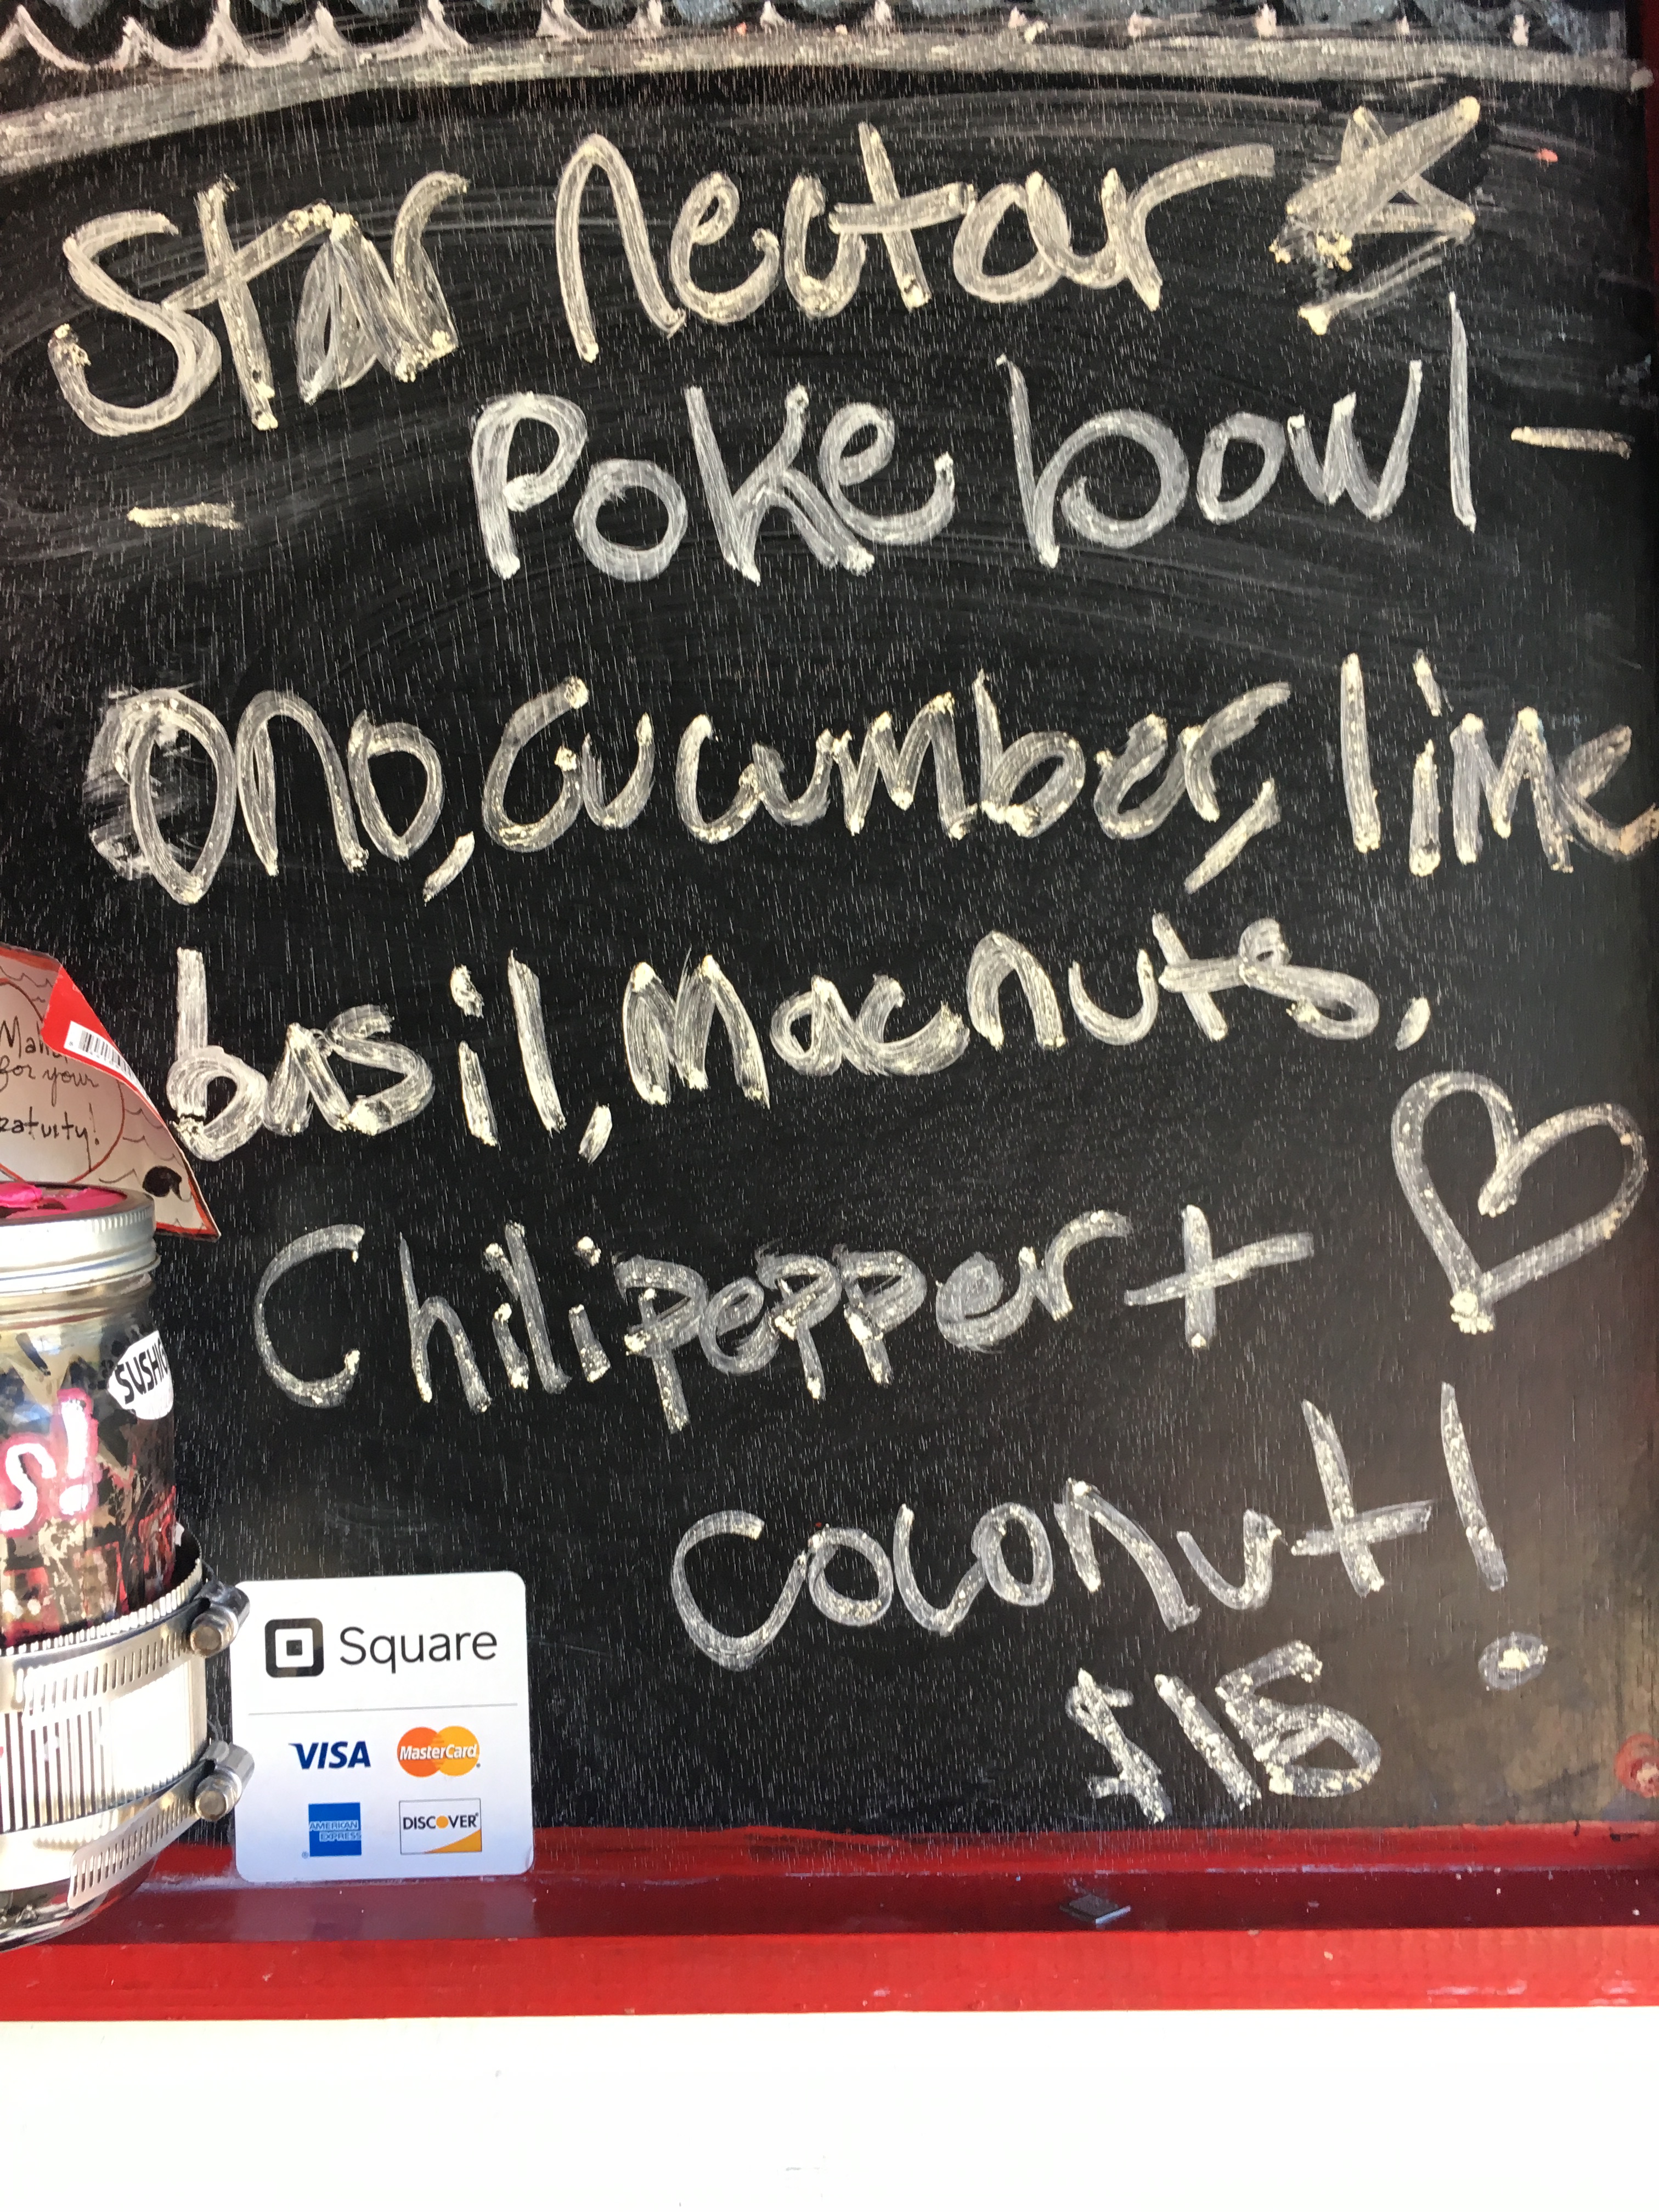 Star nectar
- Poke bowl -
Ono, cucumber, lime
basil, Macnuts,
Chilipepper +
Coconut!
$15
for your
SUSHI
s!
Square
VISA
MasterCard
AMERICAN
EXPRESS
DISCOVER